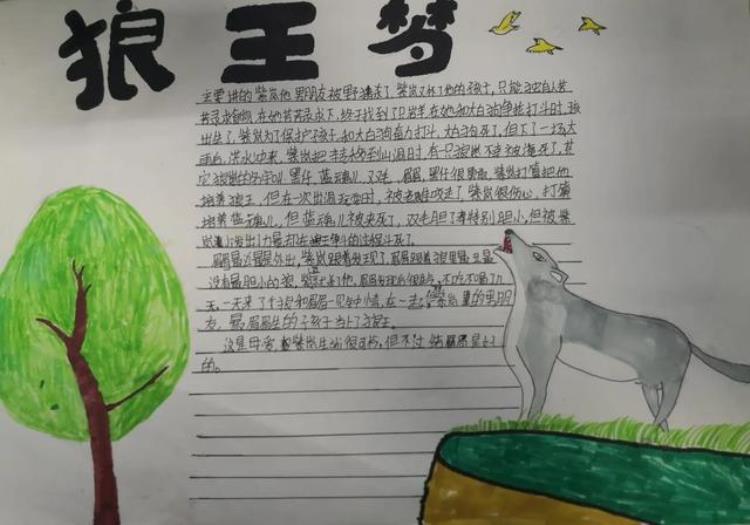 狼王梦
主要讲的紫岚他男朋友被野猪杀了,紫岚又怀了他的孩子,只能独自人苦
苦寻食物,在她苦苦寻求下,终于找到了只羊在她和大白狗争斗打斗时,孩
出生了,紫岚为了保护孩子和大白狗奋力打斗,大白狗死了,但下了一场大
雨,洪水冲来,紫岚把孩子移到山洞时,有一只狼崽不幸被淹死了,其
它狼崽的名字叫黑仔,蓝魂儿,双毛,媚媚,黑仔很勇敢,紫岚打算把他
培养狼王,但在一次出洞玩耍时,被老雕吃了,紫岚很伤心,打算
培养蓝魂儿,但蓝魂儿被夹死了,双毛胆了特别胆小,但被紫
岚 出了力量却在 争斗的过程斗死了。
媚媚最近总是外出,紫岚跟着发现了,媚媚跟着狼里最
没有最胆小的狼,紫岚 他,媚媚发现后很 ,不吃不喝了几
天,一天来了个狼和媚媚一见钟情,在一起, 紫岚 的男朋
友,最 媚媚生的子孩子当上了狼王。
这是母爱, 紫岚生 很可怜,但不过结局还是 好
的。